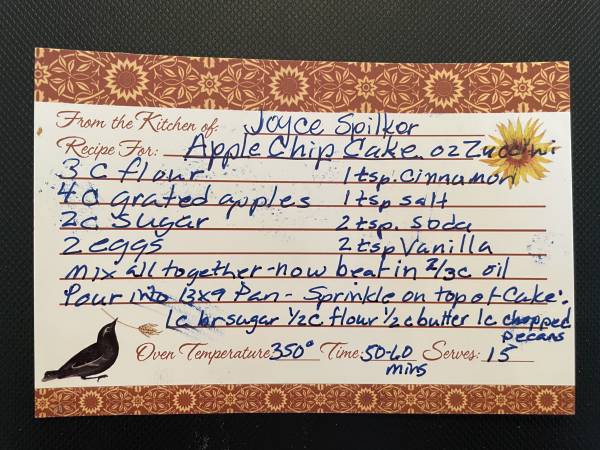 From the Kitchen of: Joyce Spilker
Recipe For: Apple Chip Cake oz Zuccini
3 c flour 1 tsp. Cinnamon
4 c grated apples 1 tsp salt
2 c sugar 2 tsp. Soda
2 eggs 2 tsp Vanilla
mix all together - now beat in 2/3 c oil
Pour into 13x9 Pan - Sprinkle on top of Cake:
1 c br sugar 1/2 c flour 1/2 c butter 1 c chopped
pecans
Oven Temperature: 350° Time: 50-60 Serves: 15
mins